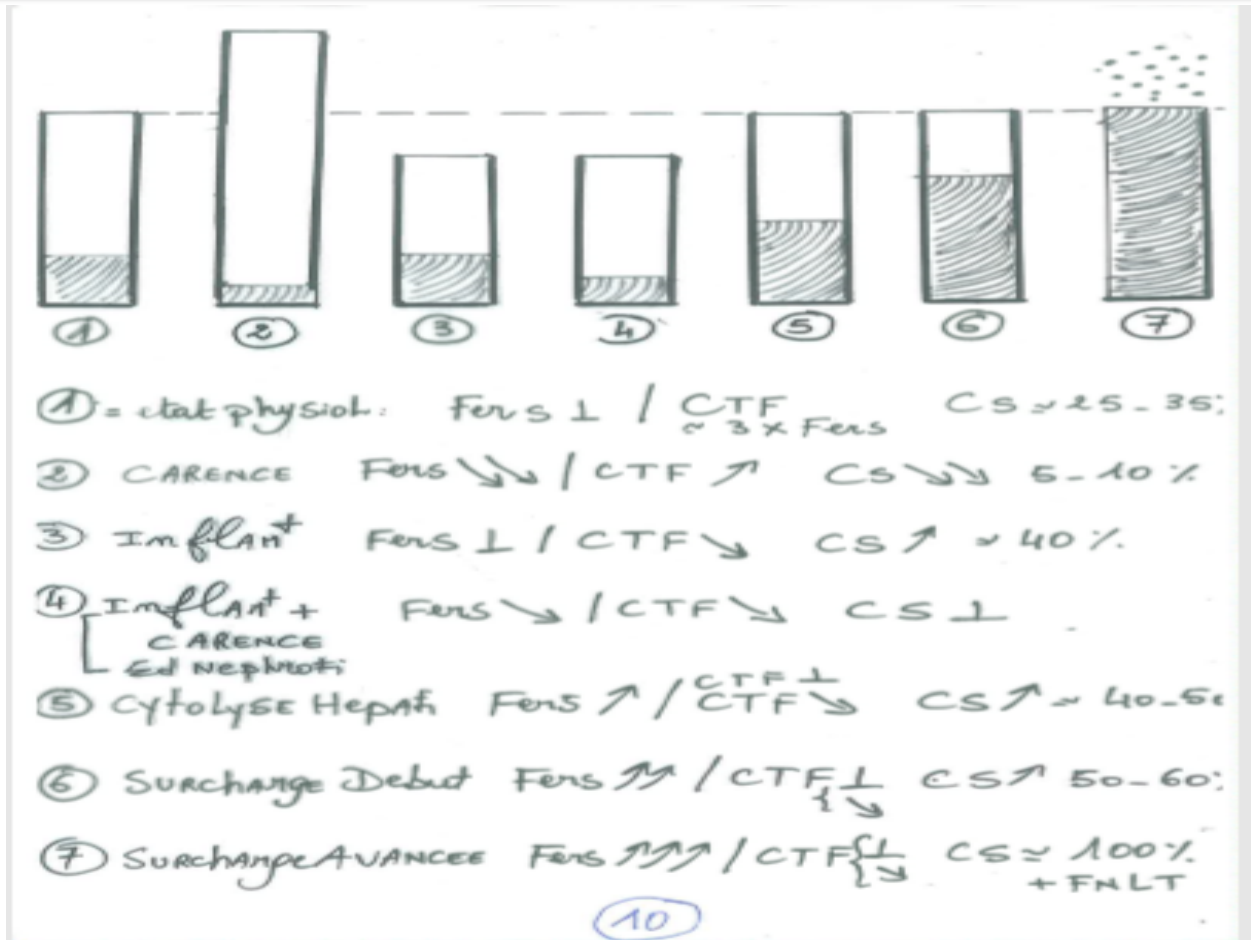 ① ② ③ ④ ⑤ ⑥ ⑦
① = etat physiol: Fer s ⊥ / CTF ~ 3 x Fers CS ≃ 25-35
② CARENCE Fers ↘↘ / CTF ↗ CS ↘↘ 5-10 %
③ Inflam⁺ Fers ⊥ / CTF ↘ CS ↗ ≃ 40 %
④ Inflam⁺ + Fers ↘ / CTF ↘ CS ⊥
CARENCE
Sd Nephroti
⑤ Cytolyse Hepati Fers ↗ / CTF ⊥ CTF ↘ CS ↗ ≃ 40-50
⑥ Surcharge Debut Fers ↗↗ / CTF { ⊥ ↘ CS ↗ 50-60
⑦ Surcharge AVANCEE Fers ↗↗↗ / CTF { ⊥ ↘ CS ≃ 100 %
+ FNLT
10